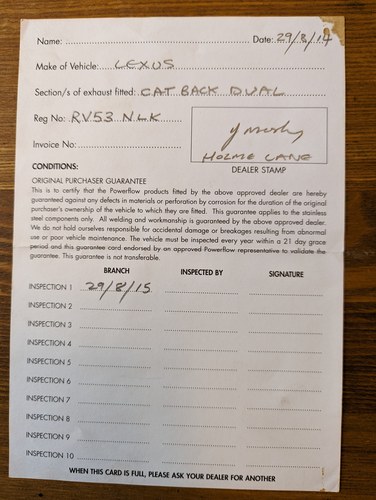 Name: Date: 29/8/14
Make of Vehicle: LEXUS
Section/s of exhaust fitted: CAT BACK DUAL
Reg No: RV53 NLK
Invoice No:
HOLME LANE
DEALER STAMP
CONDITIONS:
ORIGINAL PURCHASER GUARANTEE
This is to certify that the Powerflow products fitted by the above approved dealer are hereby
guaranteed against any defects in materials or perforation by corrosion for the duration of the original
purchaser's ownership of the vehicle to which they are fitted. This guarantee applies to the stainless
steel components only. All welding and workmanship is guaranteed by the above approved dealer.
We do not hold ourselves responsible for accidental damage or breakages resulting from abnormal
use or poor vehicle maintenance. The vehicle must be inspected every year within a 21 day grace
period and this guarantee card endorsed by an approved Powerflow representative to validate the
guarantee. This guarantee is not transferable.
BRANCH INSPECTED BY SIGNATURE
INSPECTION 1 29/8/15
INSPECTION 2
INSPECTION 3
INSPECTION 4
INSPECTION 5
INSPECTION 6
INSPECTION 7
INSPECTION 8
INSPECTION 9
INSPECTION 10
WHEN THIS CARD IS FULL, PLEASE ASK YOUR DEALER FOR ANOTHER